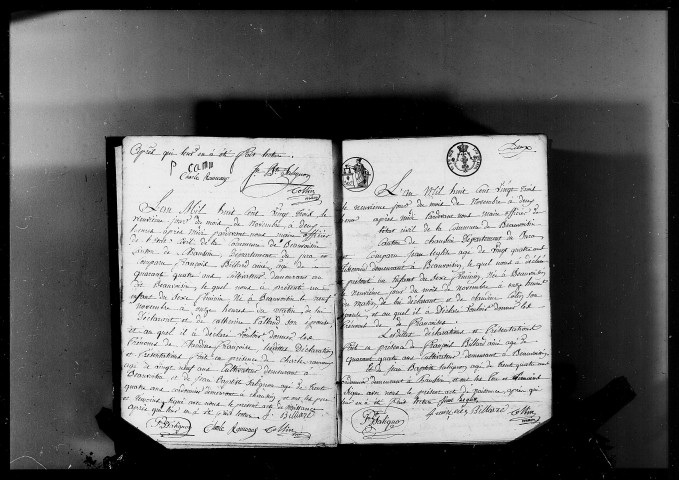 après qui leur en a été fait lecture.
Charle Ramaux
J. Bte Salignon
Collin
maire
L'an Mil huit Cent Vingt trois le
neuvième jour du mois de Novembre à deux
heures après midi pardevant nous maire officier
de l'état civil de la Commune de Beauvoisin
Canton de Chaussin, Département du Jura est
comparu François Billard ainé, âgé de
quarant quatre ans cultivateur demeurant
dit Beauvoisin, le quel nous a présenté un
enfant du Sexe féminin Né à Beauvoisin le neuf
novembre a onze heures du matin, de lui
déclarant et de catherine son épouse
et au quel il a déclaré vouloir donner les
Prénoms de Françoise, lesdittes Déclaration
et Présentations fait en présence de Charle ramaux
age de vingt neuf ans Cultivateur demeurant à
Beauvoisin et de Jean Baptiste Salignon agé de trente
quatre ans demeurant a chaussin, et ont les père
et temoins Signé avec nous le présent acte de naissance
après que leur en a été fait lecture F. Billard
J Bte Salignon Charle Ramaux Collin
Deux
L'an Mil huit Cent Vingt trois
le neuvième jour du mois de Novembre a deux
heures après midi Pardevant nous maire officier de
l'état civil de la Commune de Beauvoisin
Canton de chaussin Département du Jura
est Comparu Jean agé de Vingt quatre ans
demeurant à Beauvoisin, le quel nous a déclaré
présenté un Enfant du Sexe féminin, Né à Beauvoisin
le neuvième jour du mois de novembre à onze heures
du matin, de lui déclarant et de son
épouse, et au quel il a déclaré Vouloir donner les
Prénoms de Françoise
Lesdittes déclarations et Présentations
fait en présence de François Billard ainé agé de
quarante quatre ans cultivateur demeurant à Beauvoisin
et de Jean Baptiste Salignon agé de trente quatre ans
demeurant à Chaussin, et ont les Père et temoins
Signé avec nous le présent acte de naissance, après qui
leur en a été Fait lecture
J Bte Salignon François Billard Collin
maire